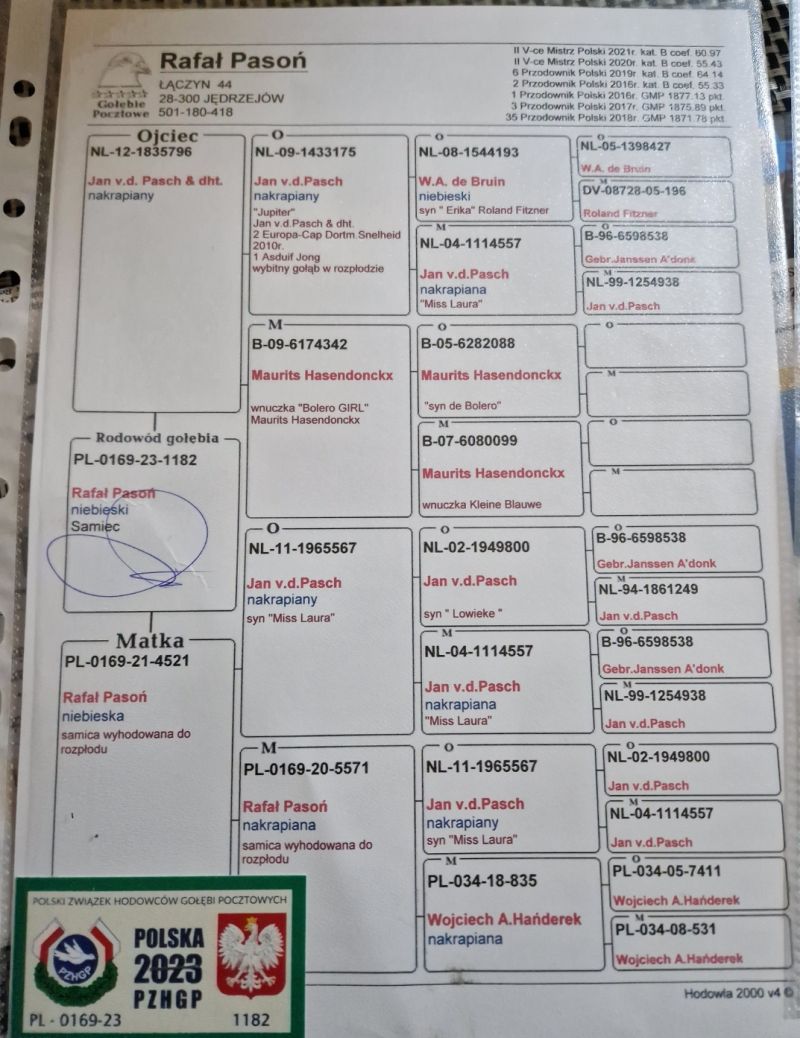 Rafał Pasoń
ŁĄCZYN 44
28-300 JĘDRZEJÓW
501-180-418
Gołębie
Pocztowe
II V-ce Mistrz Polski 2021r. kat. B coef. 60.97
II V-ce Mistrz Polski 2020r. kat. B coef. 55.43
6 Przodownik Polski 2019r. kat. B coef. 64.14
2 Przodownik Polski 2016r. kat. B coef. 55.33
1 Przodownik Polski 2016r. GMP 1877.13 pkt.
3 Przodownik Polski 2017r. GMP 1875.89 pkt.
35 Przodownik Polski 2018r. GMP 1871.78 pkt
Ojciec
NL-12-1835796
Jan v.d. Pasch & dht.
nakrapiany
Rodowód gołębia
PL-0169-23-1182
Rafał Pasoń
niebieski
Samiec
Matka
PL-0169-21-4521
Rafał Pasoń
niebieska
samica wyhodowana do
rozpłodu
O
NL-09-1433175
Jan v.d.Pasch
nakrapiany
"Jupiter"
Jan v.d.Pasch & dht.
2 Europa-Cap Dortm Snelheid
2010r.
1 Asduif Jong
wybitny gołąb w rozpłodzie
M
B-09-6174342
Maurits Hasendonckx
wnuczka "Bolero GIRL"
Maurits Hasendonckx
O
NL-11-1965567
Jan v.d.Pasch
nakrapiany
syn "Miss Laura"
M
PL-0169-20-5571
Rafał Pasoń
nakrapiana
samica wyhodowana do
rozpłodu
O
NL-08-1544193
W.A. de Bruin
niebieski
syn " Erika" Roland Fitzner
M
NL-04-1114557
Jan v.d.Pasch
nakrapiana
"Miss Laura"
O
B-05-6282088
Maurits Hasendonckx
"syn de Bolero"
M
B-07-6080099
Maurits Hasendonckx
wnuczka Kleine Blauwe
O
NL-02-1949800
Jan v.d.Pasch
syn " Lowieke "
M
NL-04-1114557
Jan v.d.Pasch
nakrapiana
"Miss Laura"
O
NL-11-1965567
Jan v.d.Pasch
nakrapiany
syn "Miss Laura"
M
PL-034-18-835
Wojciech A.Hańderek
nakrapiana
O
NL-05-1398427
W.A. de Bruin
M
DV-08728-05-196
Roland Fitzner
O
B-96-6598538
Gebr.Janssen A'donk
M
NL-99-1254938
Jan v.d.Pasch
O
M
O
M
O
B-96-6598538
Gebr.Janssen A'donk
M
NL-94-1861249
Jan v.d.Pasch
O
B-96-6598538
Gebr.Janssen A'donk
M
NL-99-1254938
Jan v.d.Pasch
O
NL-02-1949800
Jan v.d.Pasch
M
NL-04-1114557
Jan v.d.Pasch
O
PL-034-05-7411
Wojciech A.Hańderek
M
PL-034-08-531
Wojciech A.Hańderek
Hodowla 2000 v4 ©
POLSKI ZWIĄZEK HODOWCÓW GOŁĘBI POCZTOWYCH
PZHGP
POLSKA
2023
PZHGP
PL - 0169-23
1182